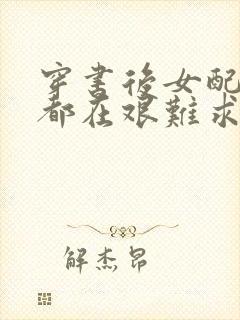 穿書後女配
都在艰難求
解杰昂